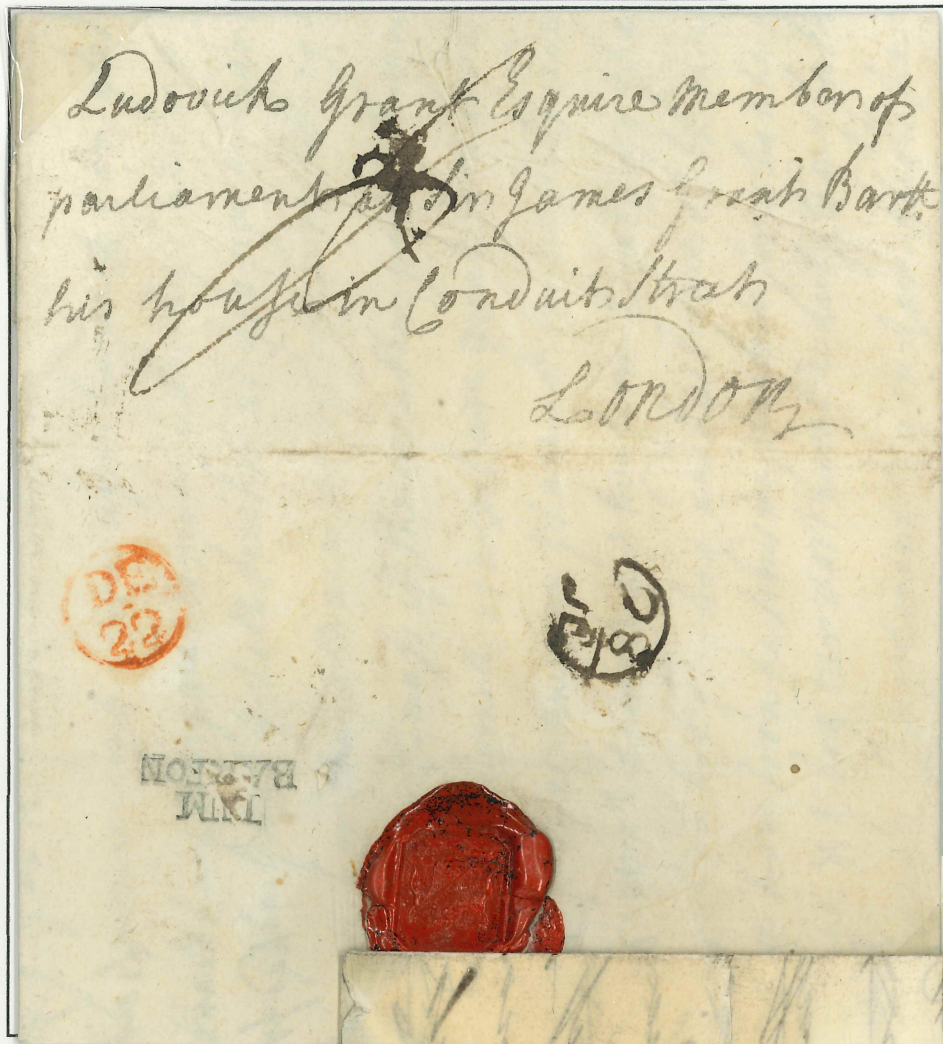 Ludovick Grant Esquire Member of
parliament at Sir James Grant Bartt.
his house in Conduit Street
London
DE
22
DE
18
DUM
BARTON